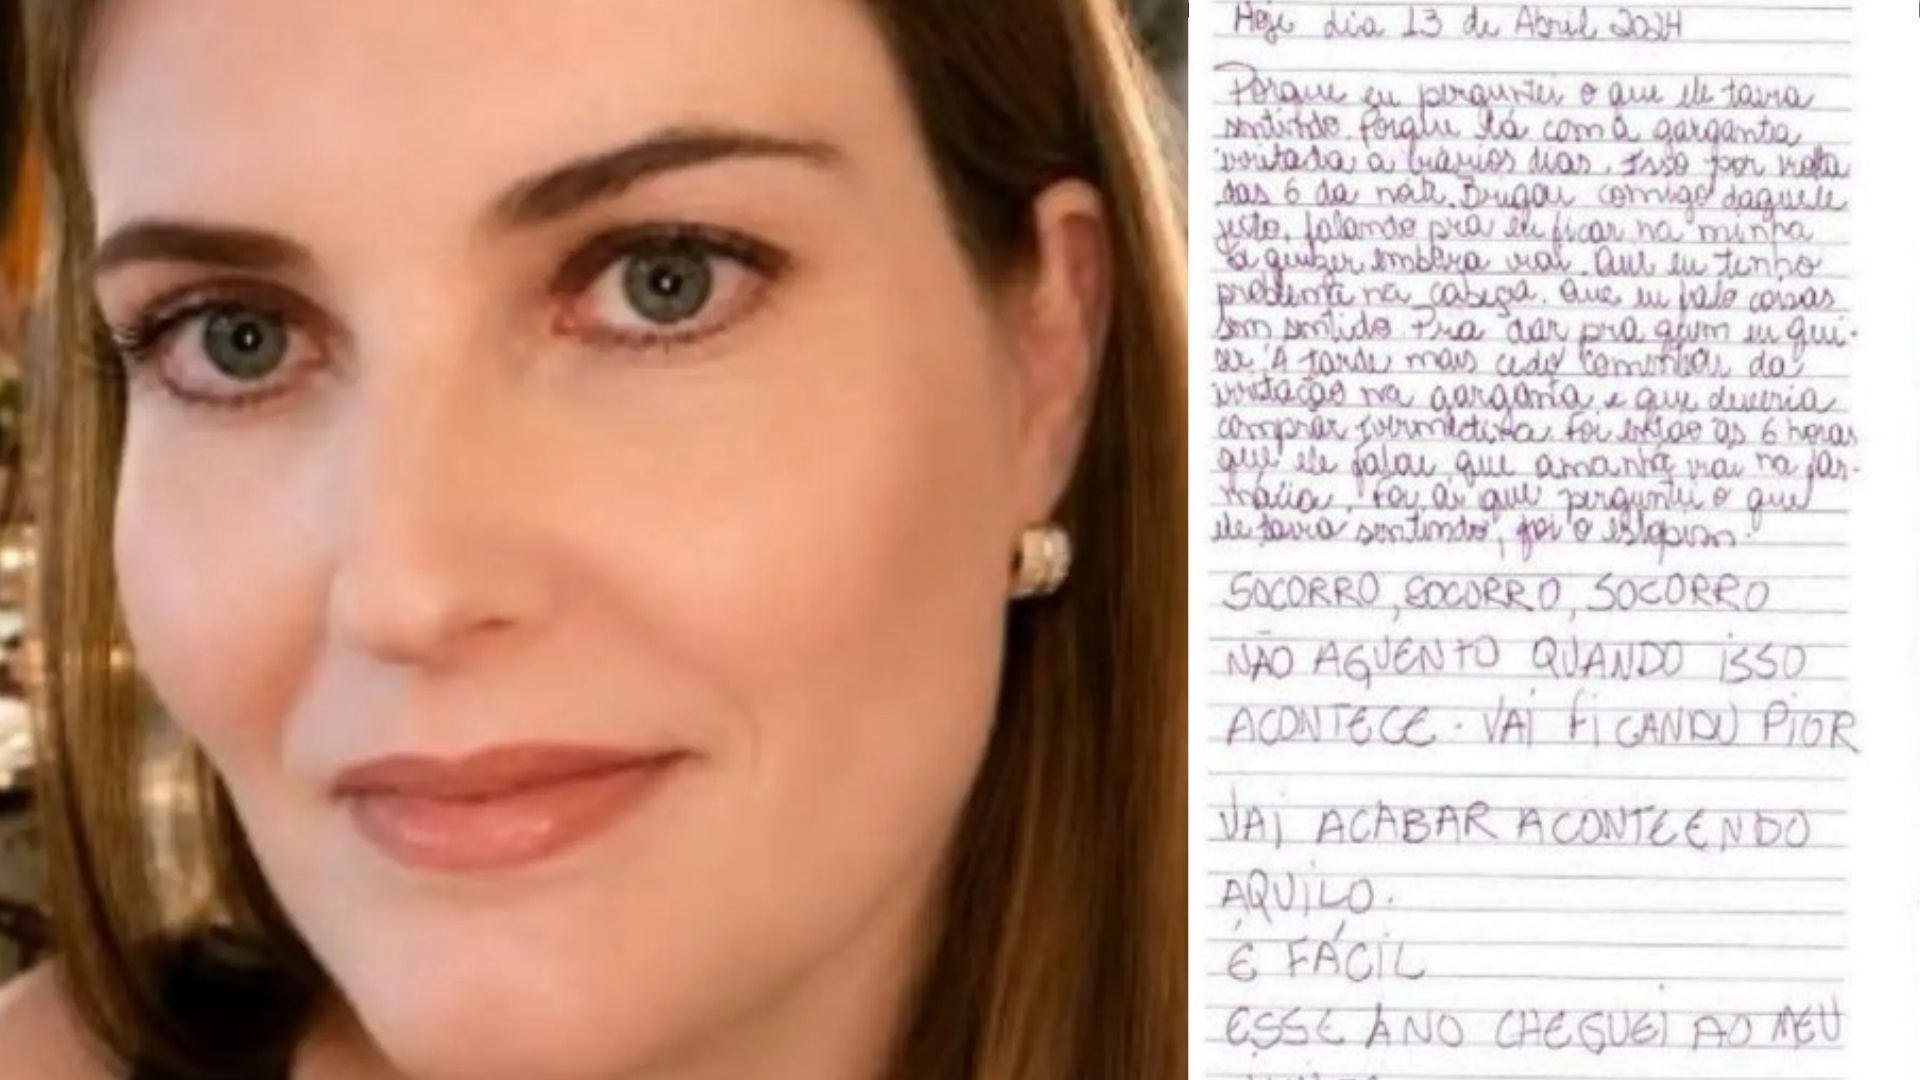 Hoje dia 13 de Abril 2024
Porque eu perguntei o que ele tava
sentindo. Porque tá com a garganta
irritada a vários dias. Isso por volta
das 6 da noite. Brigou comigo daquele
jeito, falando pra eu ficar na minha
vai. Que eu tenho
problema na cabeça. Que eu falo coisas
sem sentido. Pra dar pra quem eu qui-
ser. A tarde mais cedo comentou da
irritação na garganta e que deveria
comprar Ivermectina. Foi então as 6 horas
que ele falou que amanhã vai na far-
mácia. Foi ai que perguntei o que
ele tava sentindo, foi o estopim.
SOCORRO, SOCORRO, SOCORRO
NÃO AGUENTO QUANDO ISSO
ACONTECE. VAI FICANDO PIOR
VAI ACABAR ACONTEENDO
AQUILO.
É FÁCIL
ESSE ANO CHEGUEI AO MEU